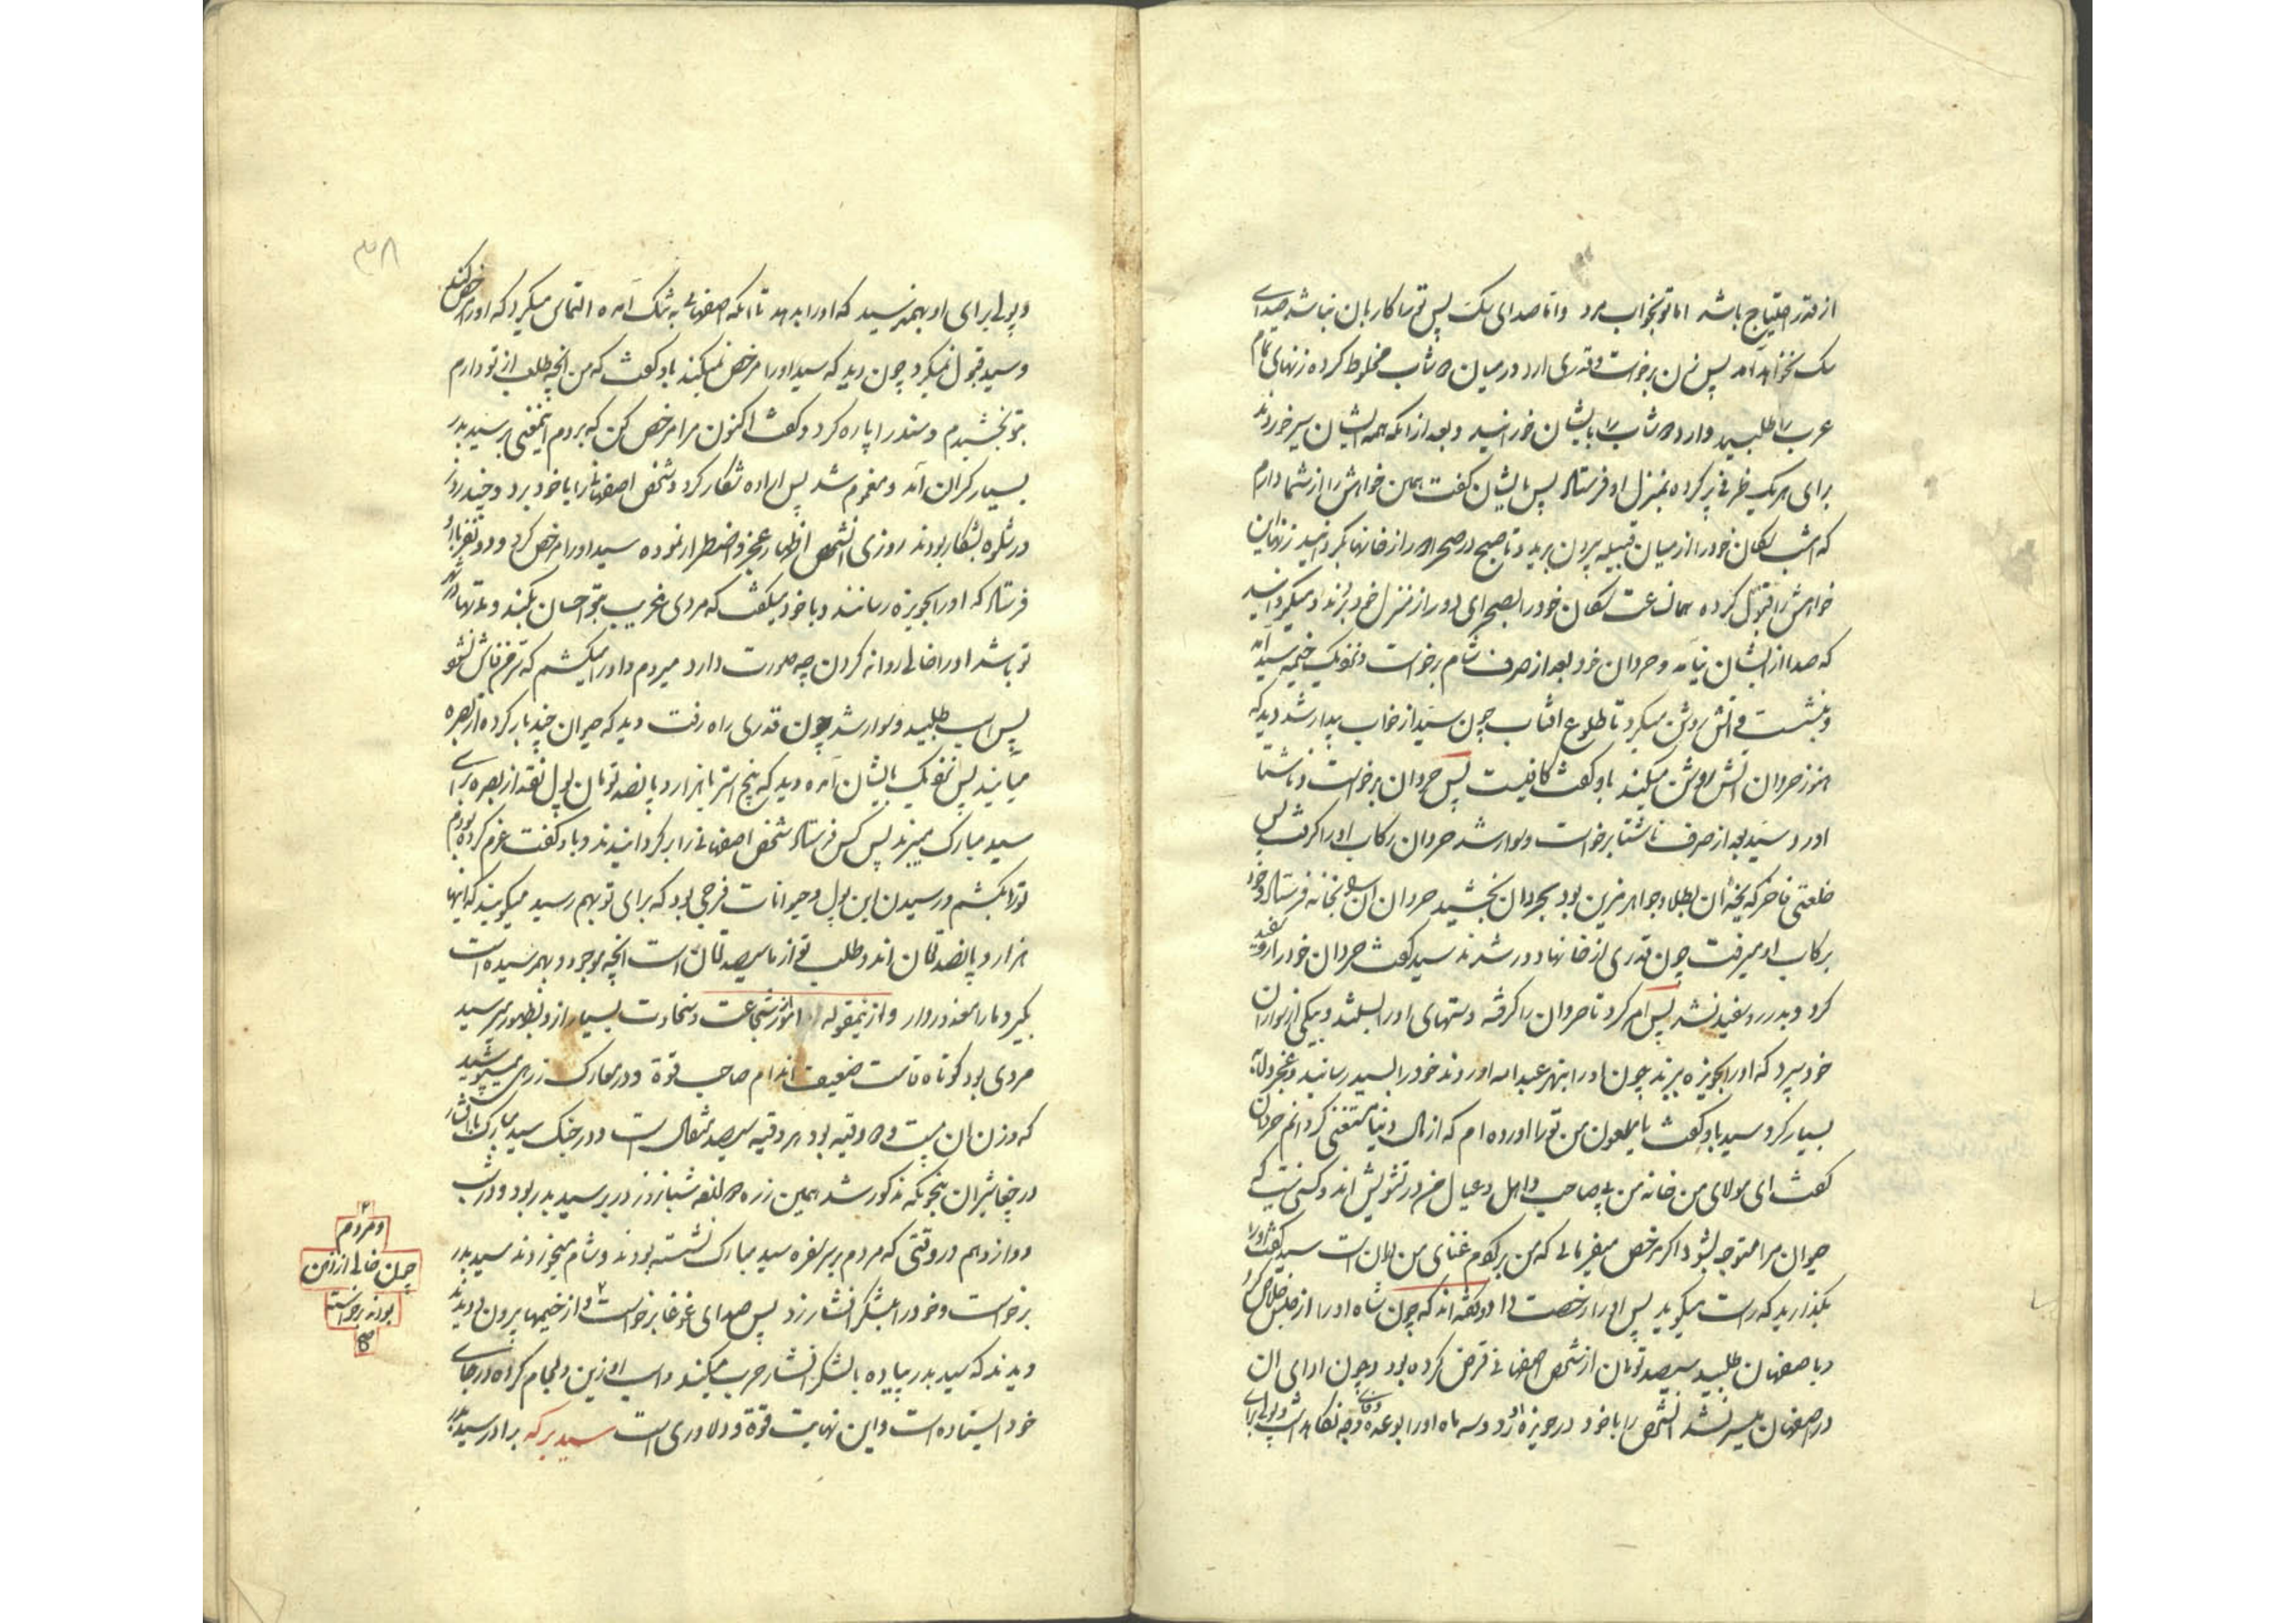 از قدر احتیاج باشد اما تو بخواب مرد و اما صدای سک پس تو را کار بان نباشد صدای
سک نخواهد امد پس زن برخواست و قدری ارد در میان شاب مخلوط کرده زنهای تمام
عرب را طلبید و ارد شاب را بایشان خورانید و بعد از انکه همه ایشان سیر خوردند
برای هر یک ظرفی پر کرده بمنزل او فرستاد پس بایشان کفت همین خواهش را از شما دارم
که امشب سکان خود را از میان قبیله بیرون برید و تا صبح در صحرا دور از خانها نکهدارید زنان این
خواهش را قبول کرده همان ساعت سکان خود را بصحرای دور از منزل خود بردند
که صدا از ایشان نیامد و حردان خود بعد از صرف شام برخواست و نزدیک خیمه سید امد
و بنشست و اتش روشن میکرد تا طلوع افتاب چون سید از خواب بیدار شد دید که
هنوز حردان اتش روشن میکند باو کفت کافیست پس حردان برخواست و ناشتا
اورد و سید بعد از صرف ناشتا برخواست و سوار شد حردان رکاب او را کرفت پس
خلعتی فاخر که یخه ان بطلا و جواهر مزین بود بحردان بخشید حردان ان را بخانه فرستاد و خود
برکاب او میرفت چون قدری از خانها دور شدند سید کفت حردان خود را رو سفید
کرد و بدر رو سفید نشد پس امر کرد تا حردان را کرفته دستهای او را بستند و بیکی از نوکران
خود سپرد که او را بحویزه برند چون او را بنهر عبدالله اوردند خود را بسید رسانید و عجز و لابه
بسیار کرد سید باو کفت یا ملعون من تو را اورده ام که از مال دنیا مستغنی کردانم حردان
کفت ای مولای من خانه من بی صاحب و اهل و عیال من در تشویش اند و کسی نیست که
حیوان مرا متوجه بشود اکر مرخص میفرمائی که من بر کوم غنای من همان است سید کفت او را
بگذارید که راست میکوید پس او را رخصت داد و کفته اند که چون شاه او را از حبس خلاص کرد
و باصفهان طلبید سیصد تومان از شخص اصفهانی قرض کرده بود و چون ادای ان
در اصفهان میسر نشد انشخص را با خود در حویزه اورد و دو سه ماه او را بوعده وفای وجه نکاه داشت و پولی برای
۳۸
و پولی برای او بهم نرسید که او را بدهد تا انکه اصفهانی به تنک امده التماس میکرد که او را مرخص کند
و سید قبول نمیکرد چون دید که سید او را مرخص نمیکند باو کفت که من انچه طلب از تو دارم
بتو بخشیدم و سند را پاره کرد و کفت اکنون مرا مرخص کن که بروم اینمعنی بر سید بدر
بسیار کران آمد و مغموم شد پس اراده شکار کرد و شخص اصفهانی را با خود برد و چند روز
در شکره بشکار بودند روزی انشخص اظهار عجز و اضطرار نموده سید او را مرخص کرد و دو نفر باو
فرستاد که او را بحویزه رسانند و با خود میکفت که مردی غریب بتو احسان بکند و مدتها در شهر
تو باشد او را خالی روانه کردن چه صورت دارد میروم و او را میکشم که قرض فاش نشود
پس اسب طلبید و سوار شد چون قدری راه رفت دید که حیوان چند بار کرده از بصره
میایند پس نزدیک بایشان امده دید که پنج استر با هزار و پانصد تومان پول نقد از بصره برای
سید مبارک میبرند پس کس فرستاد شخص اصفهانی را بر کردانیدند و باو کفت عزم کرده بودم
تو را بکشم و رسیدن این پول و حیوانات فرجی بود که برای تو بهم رسید میکویند که اینها
هزار و پانصد تومان اند و طلب تو از ما سیصد تومان است انچه موجود و بهم رسیده است
بگیر و ما را معذور دار و از اینمقوله امور شجاعت و سخاوت بسیار از او بظهور میرسید
مردی بود کوتاه قامت ضعیف اندام صاحب قوة و در معارک زرهی میپوشید
که وزن ان بیست وقیه بود هر وقیه سیصد مثقال است و در جنک سید مبارک با افشار
در چغاشیران بنحویکه مذکور شد همین زره دوازده شبانه روز در بر سید بدر بود و در شب
دوازدهم در وقتی که مردم بر سفره سید مبارک نشسته بودند و شام میخوردند سید بدر
برخواست و خود را بلشکر افشار زد پس صدای غوغا برخواست و از خیمها بیرون دویدند
دیدند که سید بدر پیاده با لشکر افشار حرب میکند و اسب او زین و لجام کرده در جای
خود ایستاده است و این نهایت قوة و دلاوری است سید برکه برادر سید بدر
و مردم
چون خالی از زین
بودند برخواسته
صح